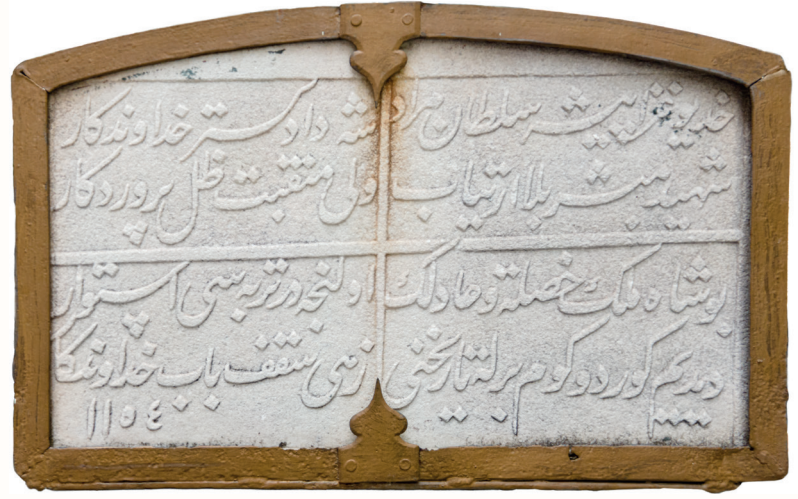 خدیو غزا پیشه سلطان مراد شه دادگستر خداوندکار
شهید مبشر بلا ارتیاب ولی منقبت ظل پروردکار
بو شاه ملك خصلة و عادلك اولنجه در تربه سی استوار
دیدیم کوردوکوم برله تاریخنی زهی سقف باب خداوندکار
١١٥٤